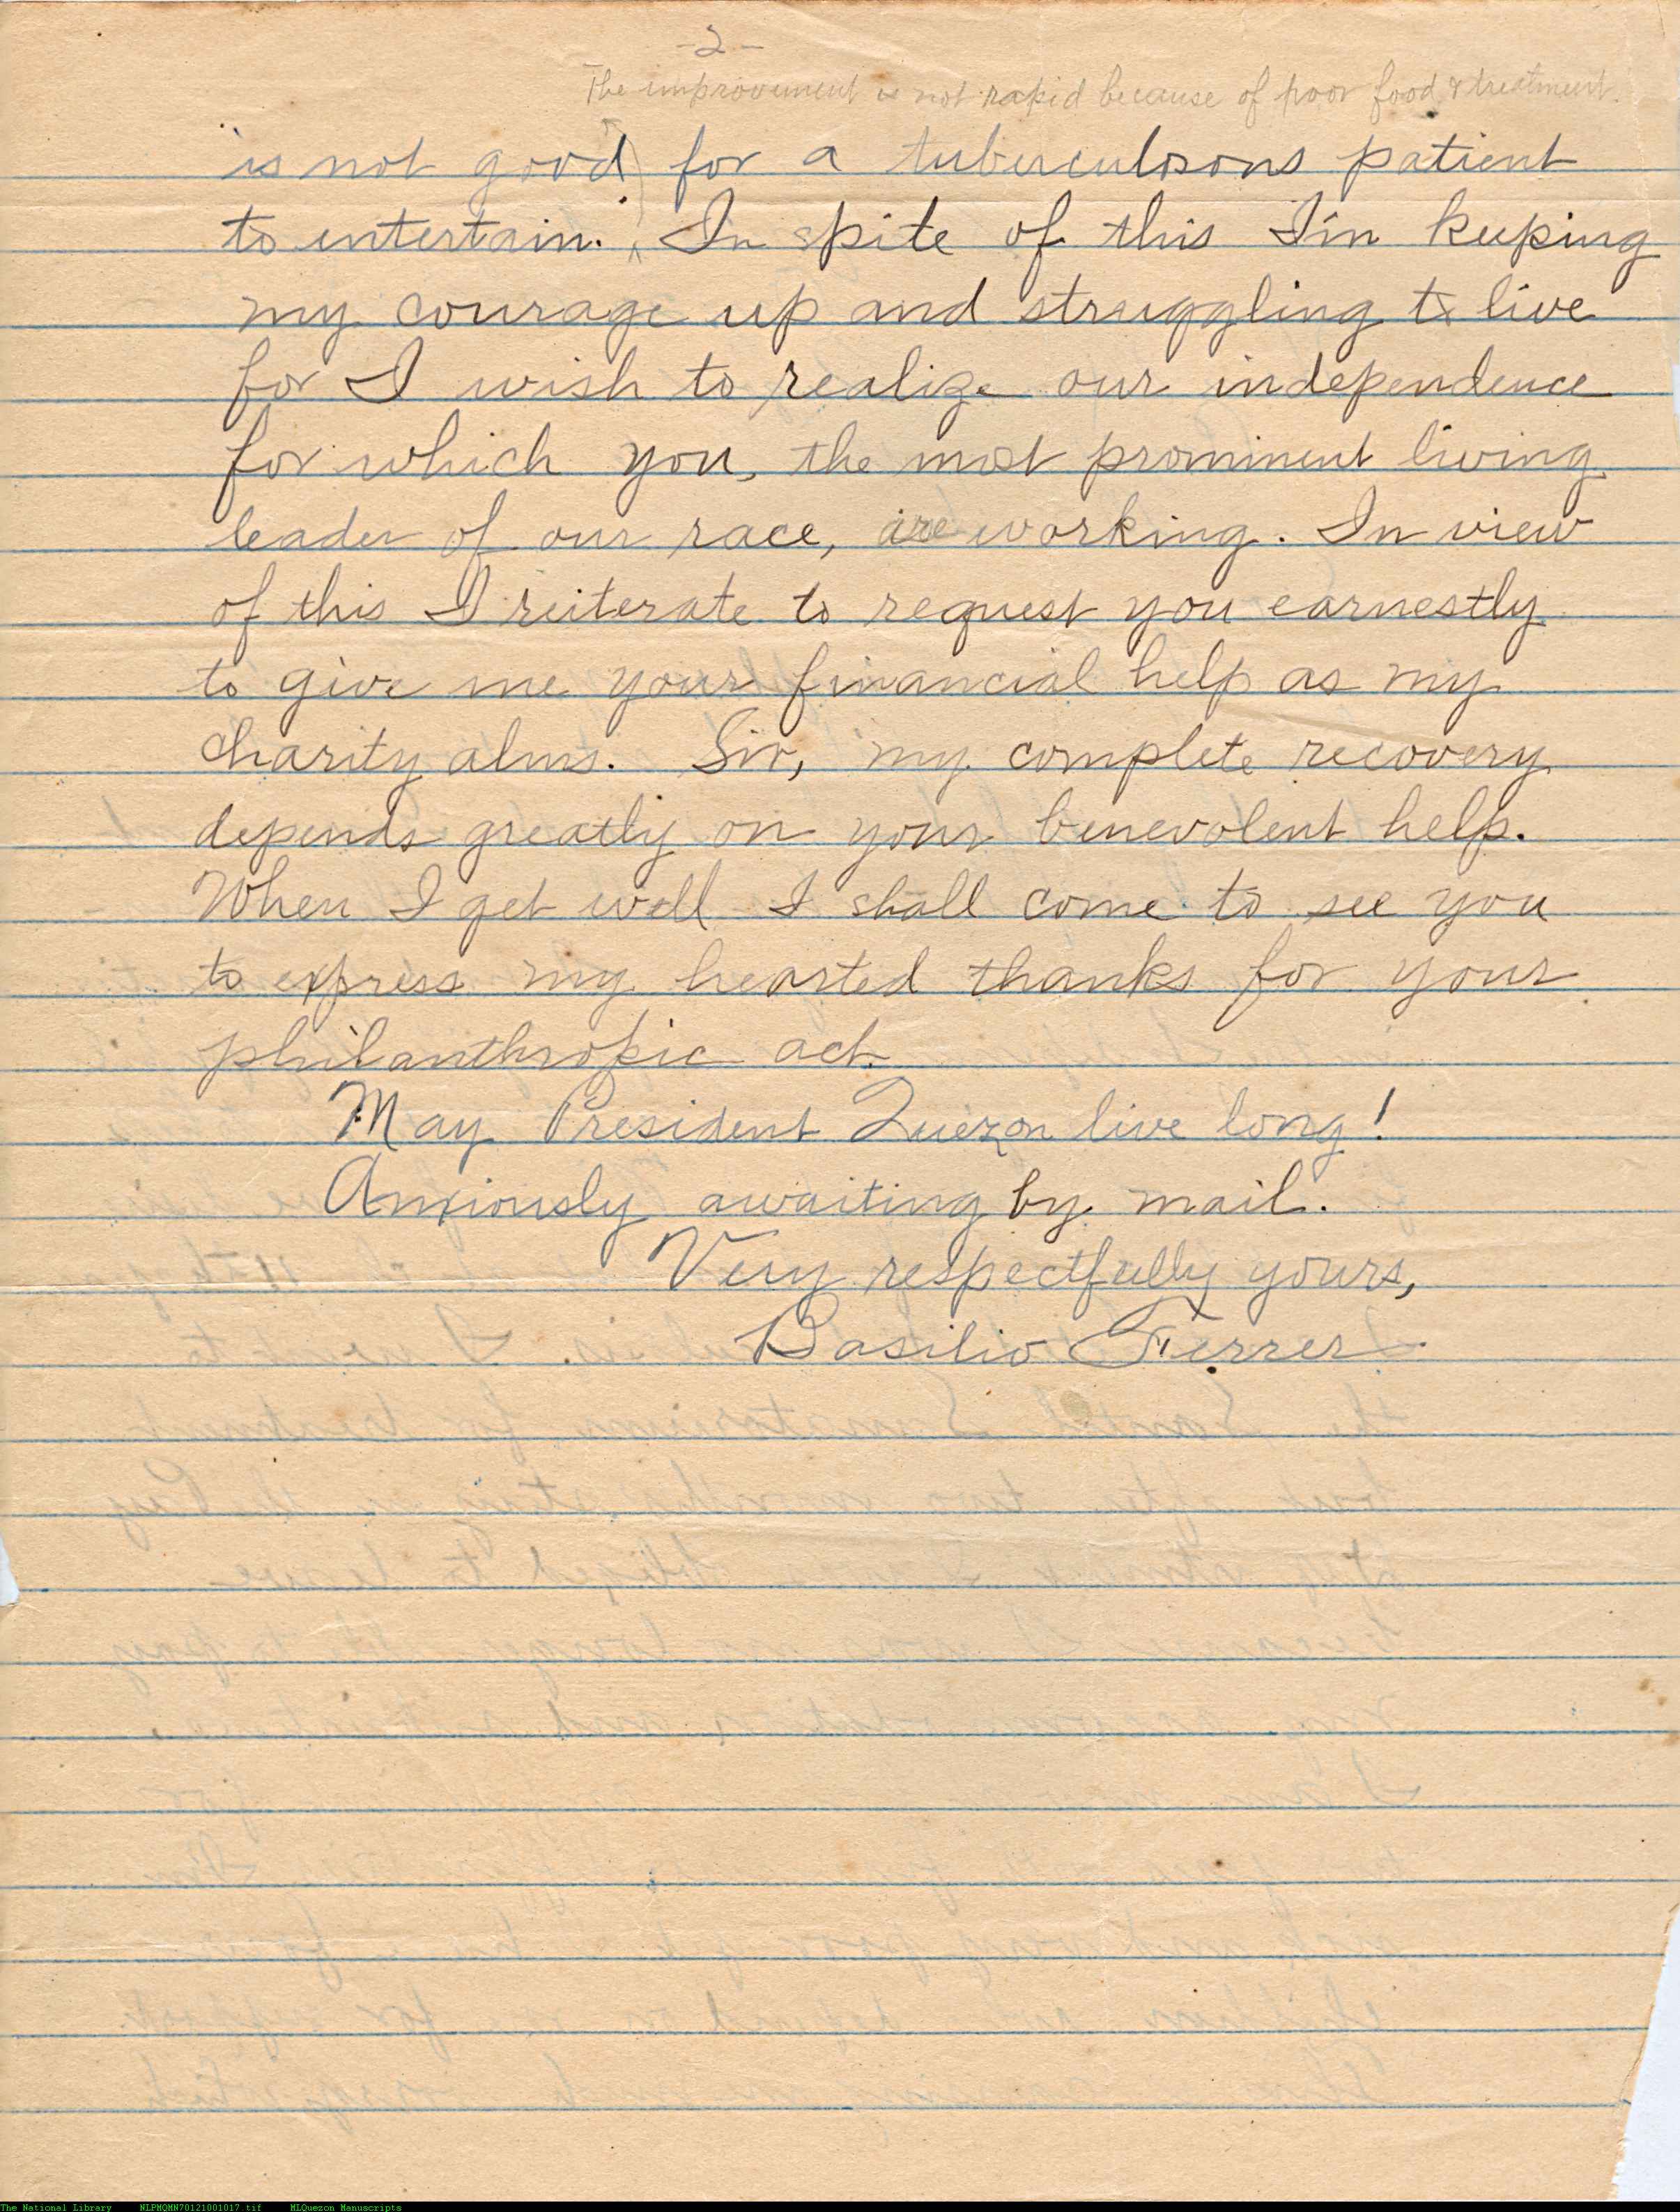 -2-
The improvement is not rapid because of poor food & treatment.
is not good for a tuberculosons patient
to entertain. In spite of this I'm keeping
my courage up and struggling to live
for I wish to realize our independence
for which you, the most prominent living
leader of our race, are working. In view
of this I reiterate to request you earnestly
to give me your financial help as my
charity alms. Sir, my complete recovery
depends greatly on your benevolent help.
When I get well I shall come to see you
to express my hearted thanks for your
philanthropic act.
May President Quezon live long!
Anxiously awaiting by mail.
Very respectfully yours,
Basilio Ferrer
The National Library NLPMQMN70121001017.tif MLQuezon Manuscripts